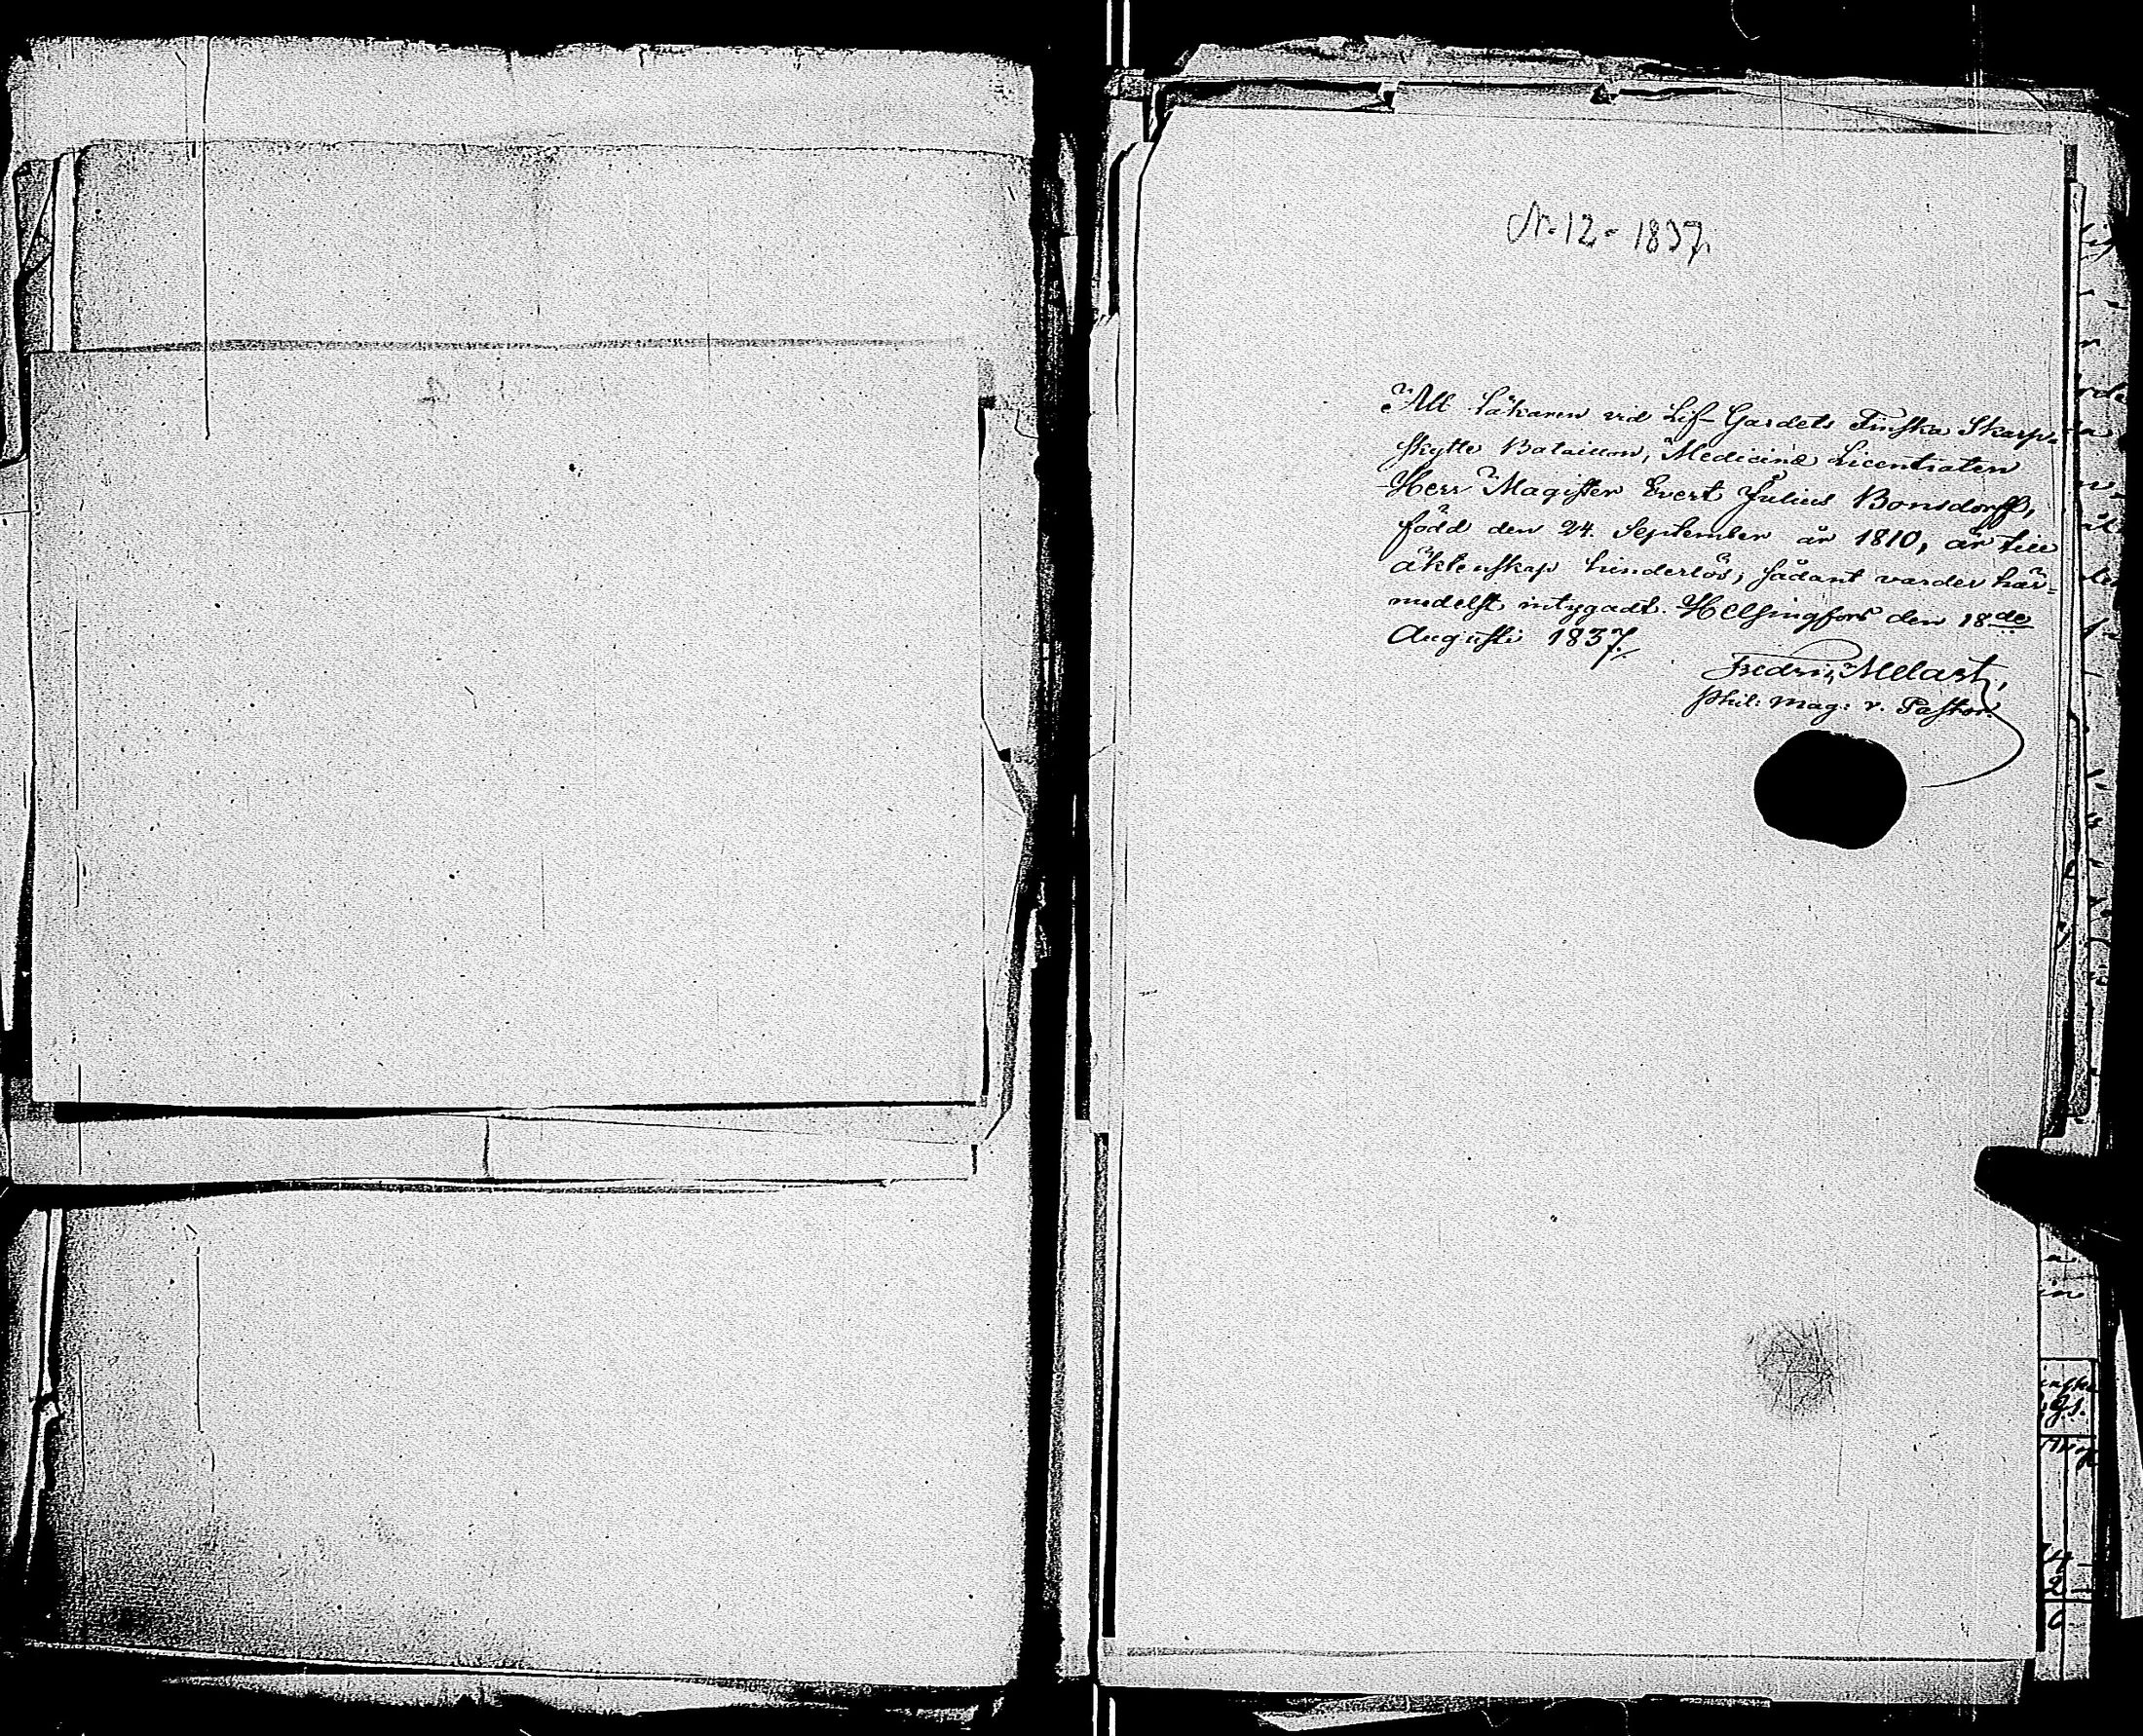 N. 12. 1837.
Att Läkaren vid Lif-Gardets Finska Skarp-
skytte Bataillon, Medicinæ Licentiaten
Herr Magister Evert Julius Bonsdorff,
född den 24. September år 1810, är till
äktenskap hinderlös; sådant varder här-
medelst intygadt. Helsingfors den 18de
Augusti 1837./.
Fredric Melart,
Phil: Mag: v. Pastor.